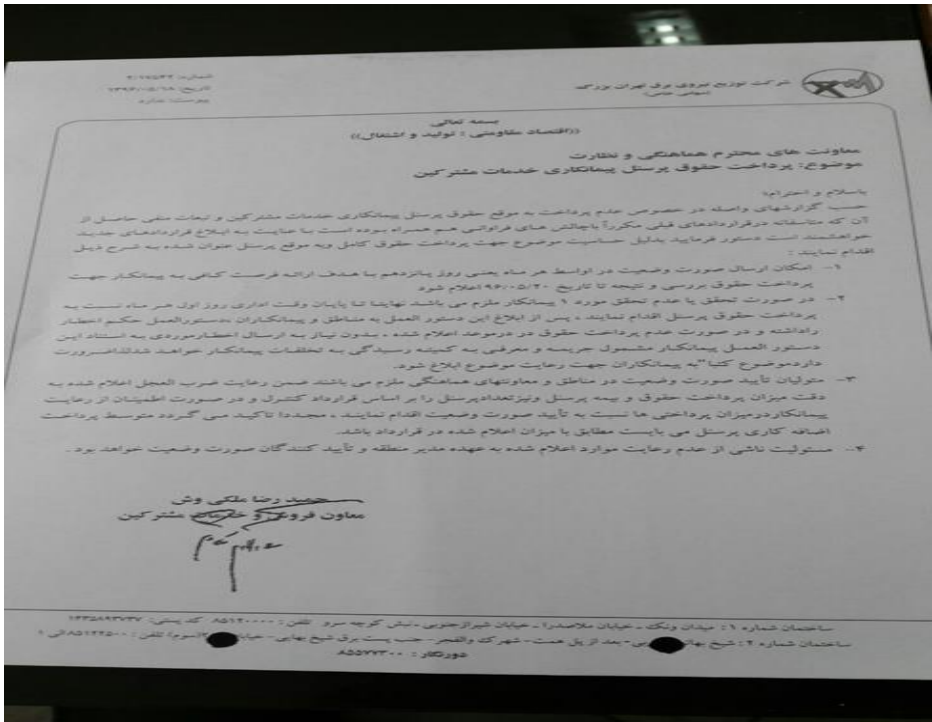 شرکت توزیع نیروی برق تهران بزرگ
(سهامی خاص)
تاریخ: ۱۳۹۶/۰۵/۱۸
پیوست: ندارد
بسمه تعالی
((اقتصاد مقاومتی : تولید و اشتغال))
معاونت های محترم هماهنگی و نظارت
موضوع: پرداخت حقوق پرسنل پیمانکاری خدمات مشترکین
باسلام و احترام؛
حسب گزارشهای واصله در خصوص عدم پرداخت به موقع حقوق پرسنل پیمانکاری خدمات مشترکین و تبعات منفی حاصل از
آن که متاسفانه درقراردادهای قبلی مکرراً باچالش های فراوانی هم همراه بوده است با عنایت به ابلاغ قراردادهای جدید
خواهشمند است دستور فرمایید بدلیل حساسیت موضوع جهت پرداخت حقوق کامل وبه موقع پرسنل عنوان شده به شرح ذیل
اقدام نمایند :
۱- امکان ارسال صورت وضعیت در اواسط هر ماه یعنی روز پانزدهم با هدف ارائه فرصت کافی به پیمانکار جهت
پرداخت حقوق بررسی و نتیجه تا تاریخ ۹۶/۰۵/۲۰ اعلام شود
۲- در صورت تحقق یا عدم تحقق مورد ۱ پیمانکار ملزم می باشد نهایتا تا پایان وقت اداری روز اول هر ماه نسبت به
پرداخت حقوق پرسنل اقدام نمایند ، پس از ابلاغ این دستور العمل به مناطق و پیمانکاران ،دستورالعمل حکم اخطار
راداشته و در صورت عدم پرداخت حقوق در درموعد اعلام شده ، بدون نیاز به ارسال اخطارموردی به استناد این
دستور العمل پیمانکار مشمول جریمه و معرفی به کمیته رسیدگی به تخلفات پیمانکار خواهد شدلذاضرورت
داردموضوع کتبا" به پیمانکاران جهت رعایت موضوع ابلاغ شود.
۳- متولیان تأیید صورت وضعیت در مناطق و معاونتهای هماهنگی ملزم می باشند ضمن رعایت ضرب العجل اعلام شده به
دقت میزان پرداخت حقوق و بیمه پرسنل ونیزتعدادپرسنل را بر اساس قرارداد کنترل و در صورت اطمینان از رعایت
پیمانکاردرمیزان پرداختی ها نسبت به تأیید صورت وضعیت اقدام نمایند ، مجددا تاکید می گردد متوسط پرداخت
اضافه کاری پرسنل می بایست مطابق با میزان اعلام شده در قرارداد باشد.
۴- مسئولیت ناشی از عدم رعایت موارد اعلام شده به عهده مدیر منطقه و تأیید کنندگان صورت وضعیت خواهد بود .
حمید رضا ملکی وش
معاون فروش و خدمات مشترکین
ساختمان شماره ۱ : میدان ونک ـ خیابان ملاصدرا ـ خیابان شیرازجنوبی ـ نبش کوچه سرو تلفن : ۸۵۱۲۰۰۰۰ کد پستی:
ساختمان شماره ۲ : شیخ - بعد از پل همت- شهرک والفجر- جنب پست برق شیخ بهایی- تلفن :
دورنگار : ۸۵۵۷۷۳۰۰